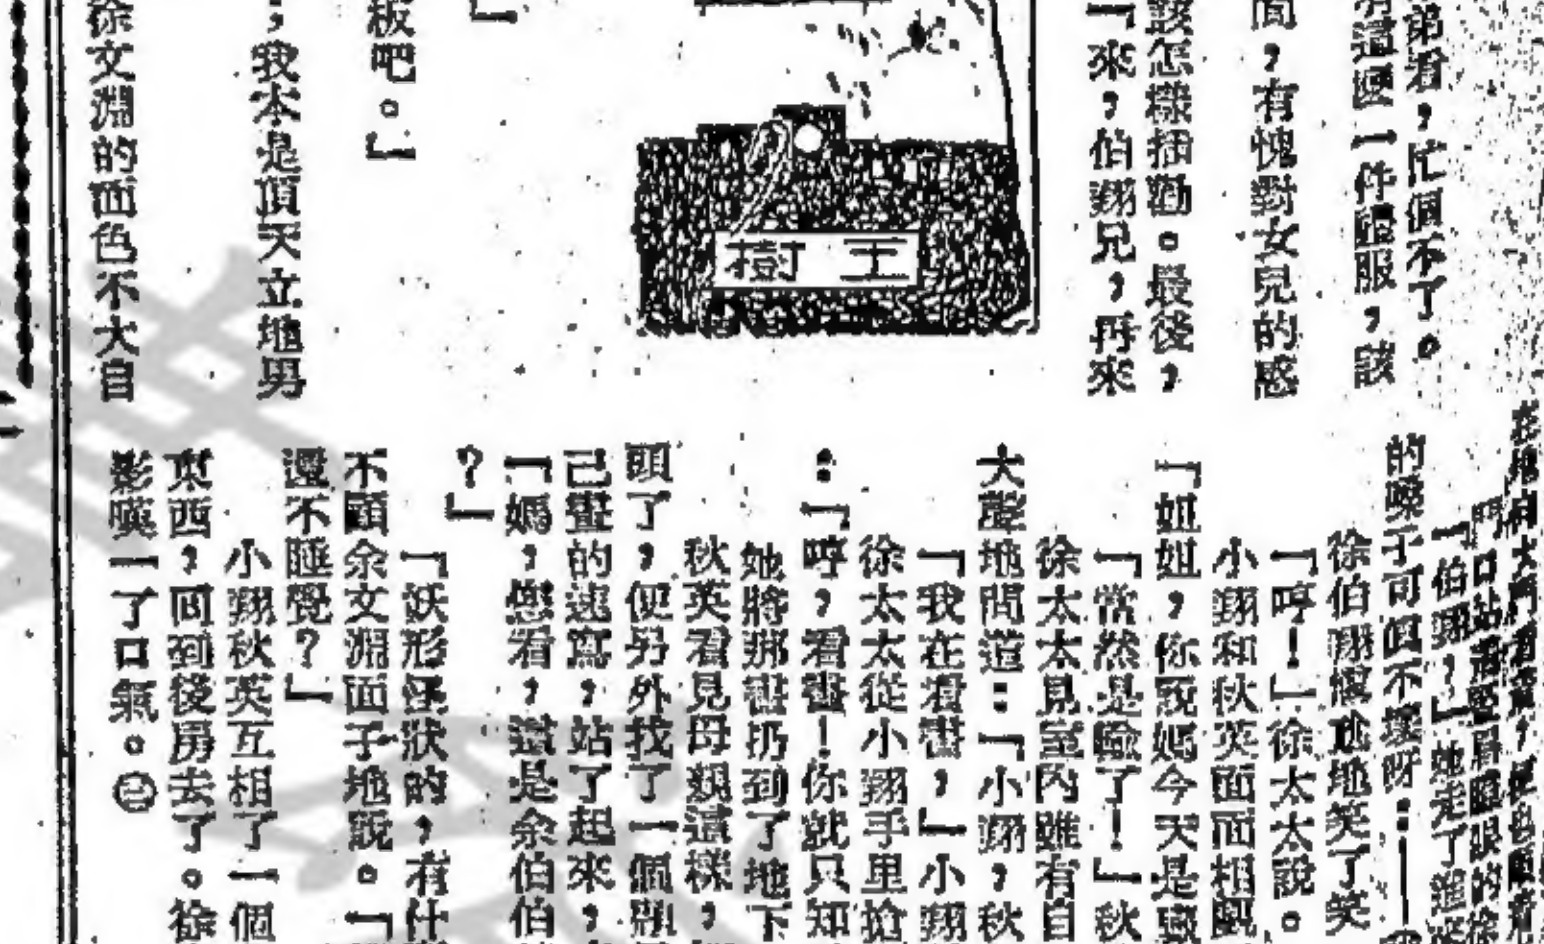 弟看,忙個不了。
有這麼一件禮服,該
面,有愧對女兒的感
該怎樣插勸。最後,
「來,伯翔兄,再來
樹王
」
板吧。」
,我本是頂天立地男
徐文淵的面色不大自
「伯翔,」她走了進
的嗓子可但不壞呀:——
徐伯翔尷尬地笑了笑
「哼!」徐太太說。
小翔和秋英面面相覷
「姐姐,你說媽今天是
「當然是瞼了!」秋
徐太太見室內雖有自
大聲地問道:「小翔,秋
「我在看書,」小翔
徐太太從小翔手里搶
:「哼,看書!你就只知
她將那書扔到了地下
秋英看見母親這樣,
頭了,便另外找了一個
己畫的速寫,站了起來,
「媽,您看,這是余伯伯
?」
「妖形怪狀的,有什
不顧余文淵面子地說。「
還不睡覺?」
小翔秋英互相了一個
東西,回到後房去了。徐
影嘆一了口氣。㊁